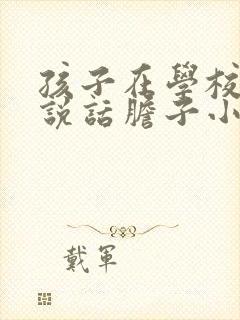 孩子在學校
說話膽子小
戴軍